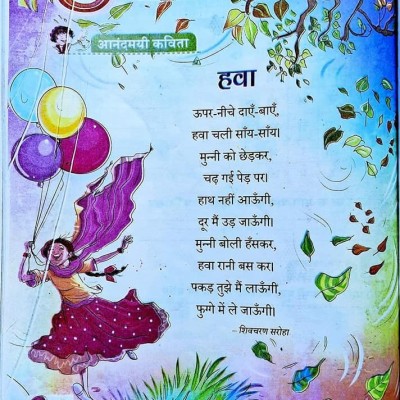 आनंदमयी कविता
हवा
ऊपर-नीचे दाएँ-बाएँ,
हवा चली साँय-साँय।
मुन्नी को छेड़कर,
चढ़ गई पेड़ पर।
हाथ नहीं आऊँगी,
दूर मैं उड़ जाऊँगी।
मुन्नी बोली हँसकर,
हवा रानी बस कर।
पकड़ तुझे मैं लाऊँगी,
फुग्गे में ले जाऊँगी।
– शिवचरण सरोहा